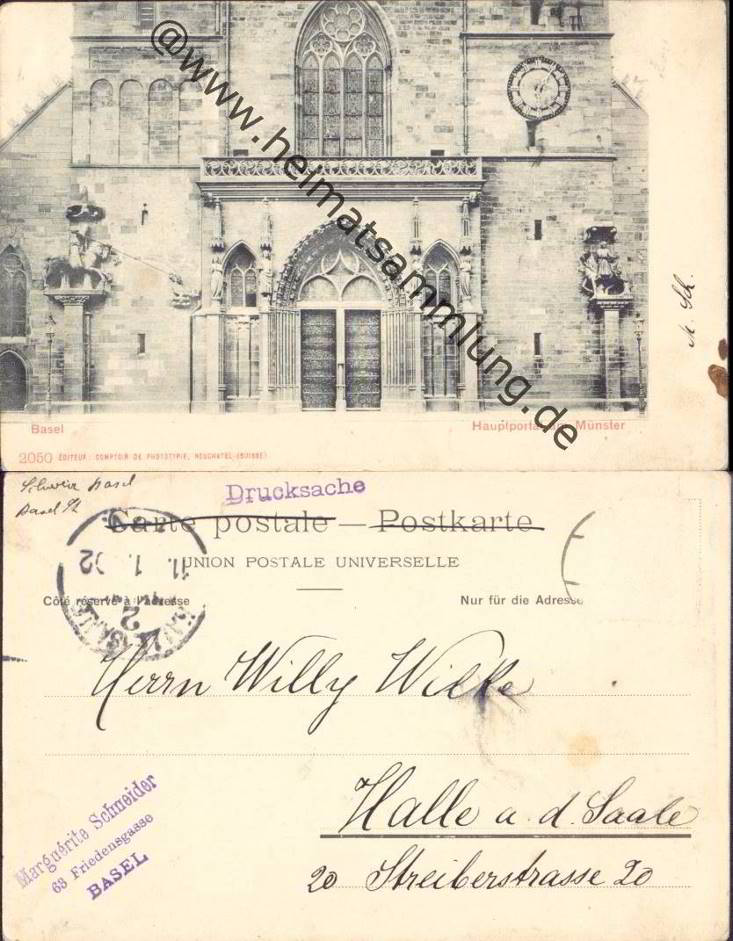 @www.heimatsammlung.de
M. Sch.
Basel
Hauptportal am Münster
2050 EDITEUR: COMPTOIR DE PHOTOTYPIE, NEUCHATEL (SUISSE)
Schweiz Basel
Basel
Drucksache
Carte postale — Postkarte
UNION POSTALE UNIVERSELLE
Côté réservé à l'adresse
Nur für die Adresse
11. 1. 02
Herrn Willy Wilke
Halle a. d. Saale
20 Streiberstrasse 20
Marguérite Schneider
63 Friedensgasse
BASEL